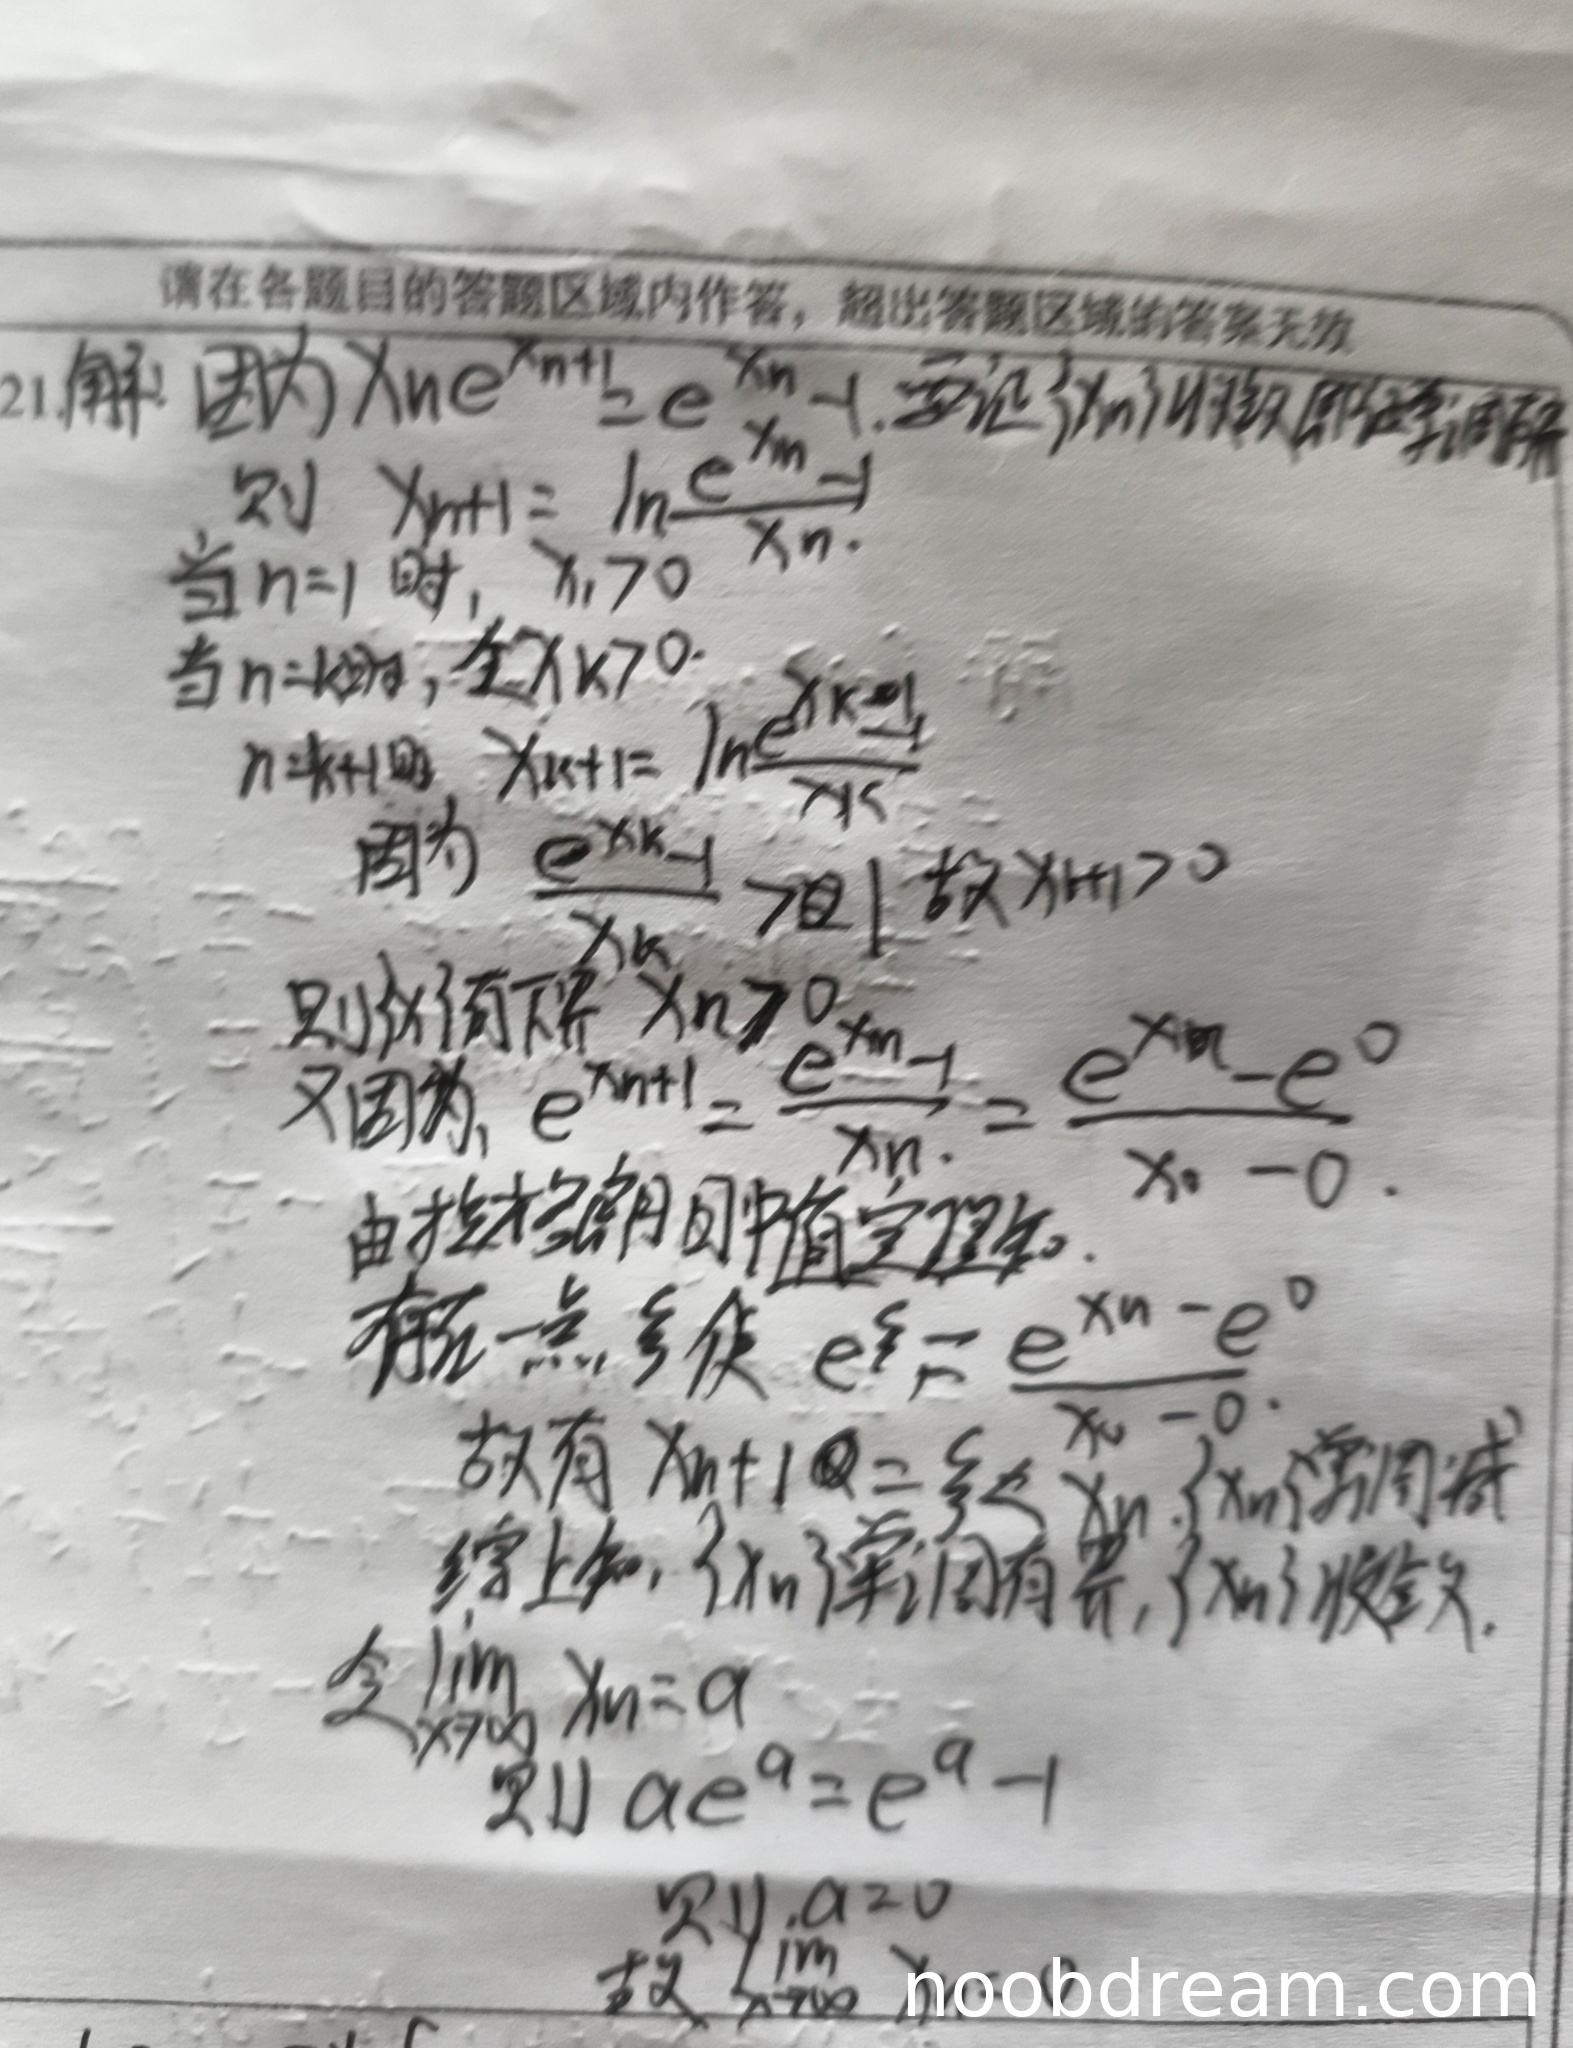 请在各题目的答题区域内作答，超出答题区域的答案无效
21.解: 因为 Xne^{Xn+1} = e^{Xn} -1. 要证{Xn}收敛即证单调有界
则 Xn+1 = ln (e^{Xn} -1)/Xn.
当n=1时, X1>0
当n=k时, 令Xk>0.
n=k+1时 Xk+1 = ln (e^{Xk} -1)/Xk
因为 (e^{Xk} -1)/Xk >1 故Xk+1>0
则 有下界 Xn>0
又因为, e^{Xn+1} = (e^{Xn} -1)/Xn. = (e^{Xn} - e^0)/(Xn -0).
由拉格朗日中值定理知.
存在一点ξ使 e^ξ = (e^{Xn} - e^0)/(Xn -0).
故有 Xn+1 = ξ < Xn. {Xn}单调减
综上知, {Xn}单调有界, {Xn}收敛.
令 lim x→∞ Xn = a
则 ae^a = e^a -1
则.a=0
故 lim x→∞ Xn = 0
noobdream.com